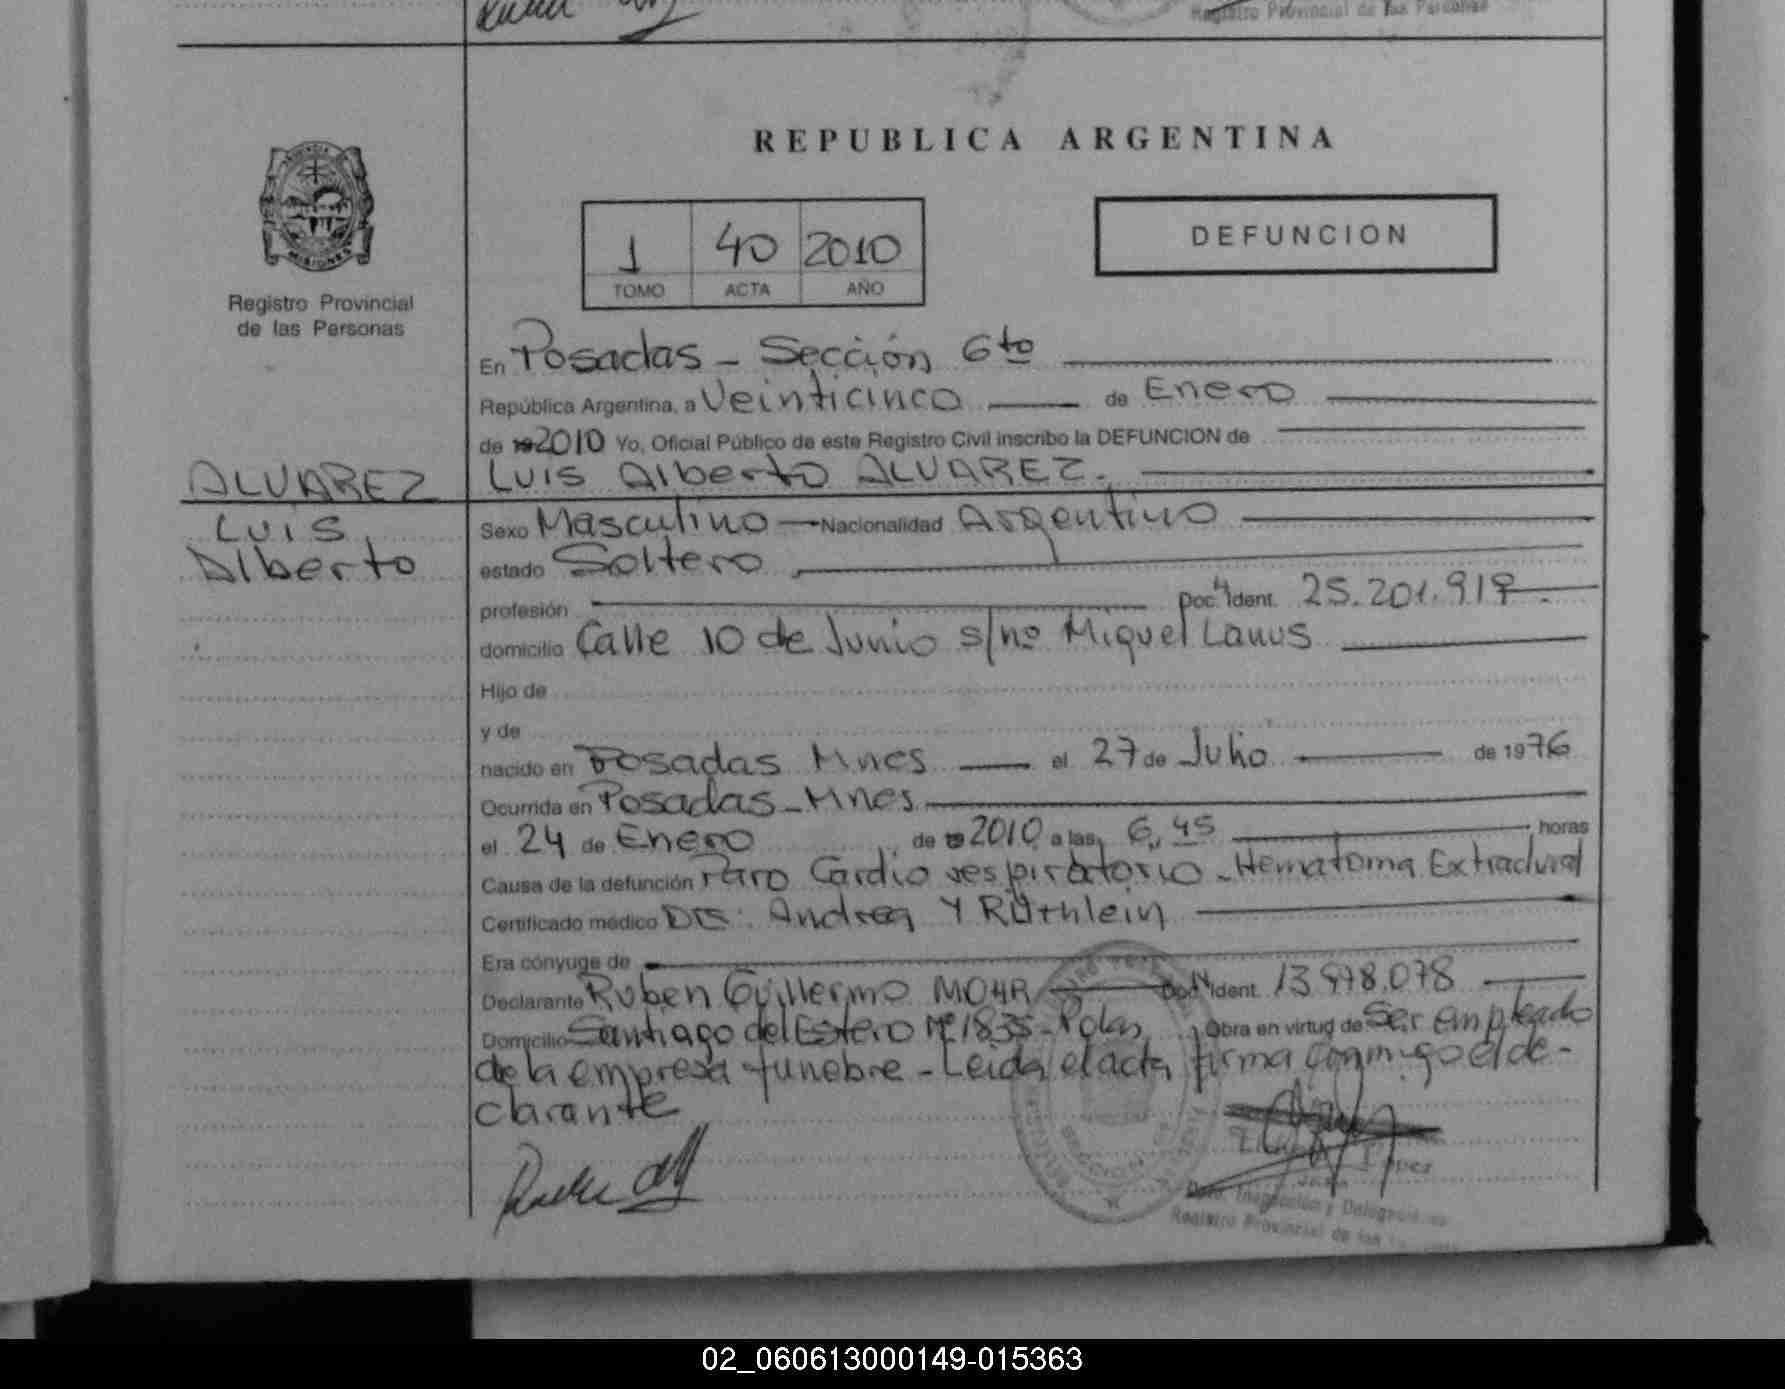 Registro Provincial de las Personas
REPUBLICA ARGENTINA
PROVINCIA DE
MISIONES
Registro Provincial
de las Personas
1 40 2010
TOMO ACTA AÑO
DEFUNCION
En Posadas - Sección 6to
República Argentina, a Veinticinco de Enero
de 19 2010 Yo, Oficial Público de este Registro Civil inscribo la DEFUNCION de
ALVAREZ
Luis
Alberto
Luis Alberto ALVAREZ.
Sexo Masculino Nacionalidad Argentino
estado Soltero
profesión Doc. Ident. 25.201.917
domicilio Calle 10 de Junio s/nº Miguel Lanus
Hijo de
y de
nacido en Posadas Mnes el 27 de Julio de 1976
Ocurrida en Posadas - Mnes
el 24 de Enero de 2010 a las 6,45 horas
Causa de la defunción Paro Cardio respiratorio - Hematoma Extradural
Certificado médico Drs: Andrea Y Rüthlein
Era cónyuge de
Declarante Ruben Guillermo MOHR Doc. Ident. 13.978.078
Domicilio Santiago del Estero Nº 1835 - Pdas Obra en virtud de Ser empleado
de la empresa funebre - Leida el acta firma conmigo el de-
clarante
Dpto. Inspección y Delegaciones
Registro Provincial de las
02_060613000149-015363